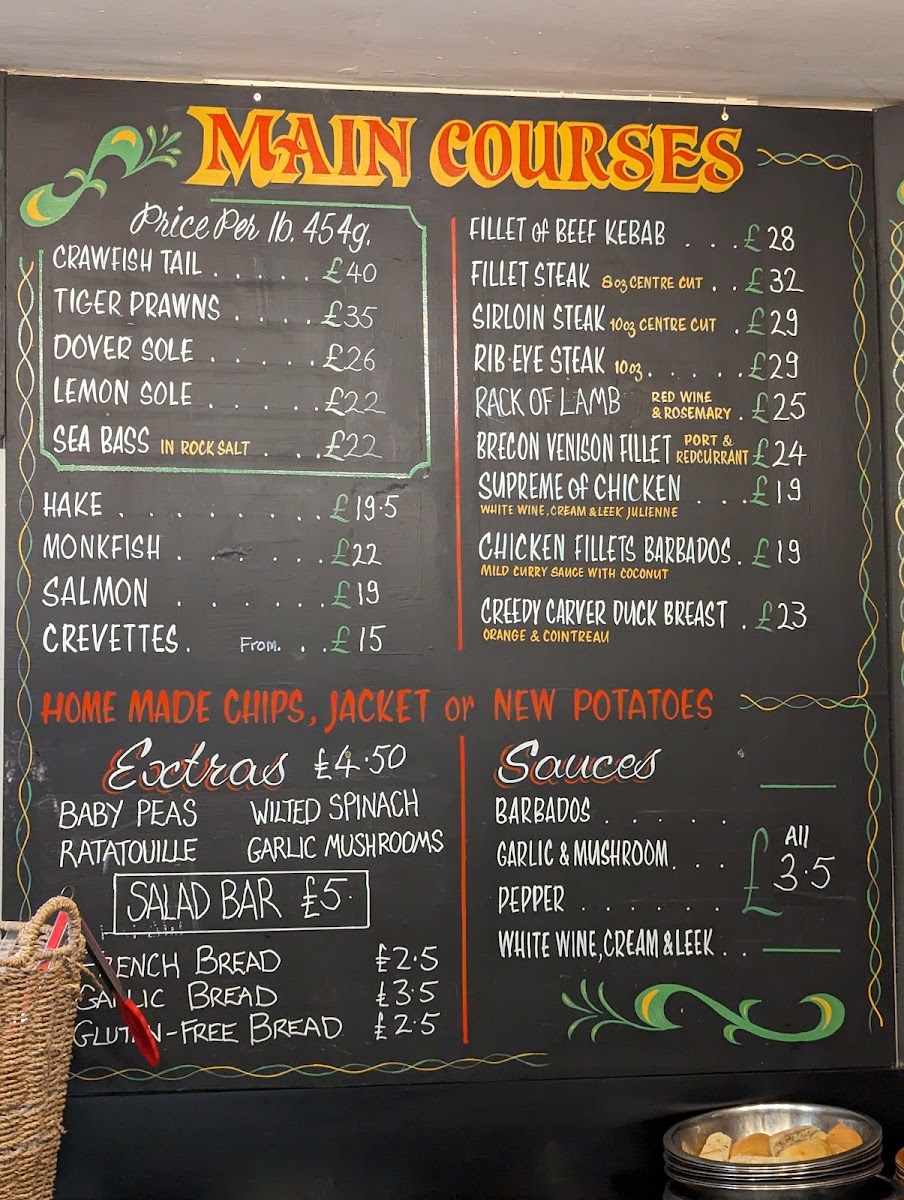 MAIN COURSES
Price Per lb. 454g.
CRAWFISH TAIL . . . . . . £40
TIGER PRAWNS . . . . . £35
DOVER SOLE . . . . . . £26
LEMON SOLE . . . . . . £22
SEA BASS IN ROCK SALT . . . £22
HAKE . . . . . . . . . £19.5
MONKFISH . . . . . . £22
SALMON . . . . . . £19
CREVETTES. From. . . £15
FILLET of BEEF KEBAB . . . £28
FILLET STEAK 8oz CENTRE CUT . . £32
SIRLOIN STEAK 10oz CENTRE CUT . £29
RIB EYE STEAK 10oz . . . . . £29
RACK OF LAMB RED WINE & ROSEMARY . £25
BRECON VENISON FILLET PORT & REDCURRANT £24
SUPREME of CHICKEN . . . £19
WHITE WINE, CREAM & LEEK JULIENNE
CHICKEN FILLETS BARBADOS. £19
MILD CURRY SAUCE WITH COCONUT
CREEDY CARVER DUCK BREAST . £23
ORANGE & COINTREAU
HOME MADE CHIPS, JACKET or NEW POTATOES
Extras £4.50
BABY PEAS WILTED SPINACH
RATATOUILLE GARLIC MUSHROOMS
SALAD BAR £5.
FRENCH BREAD £2.5
GARLIC BREAD £3.5
GLUTEN-FREE BREAD £2.5
Sauces
BARBADOS . . . . . .
GARLIC & MUSHROOM. . . .
PEPPER . . . . . . .
WHITE WINE, CREAM & LEEK . .
All
£3.5